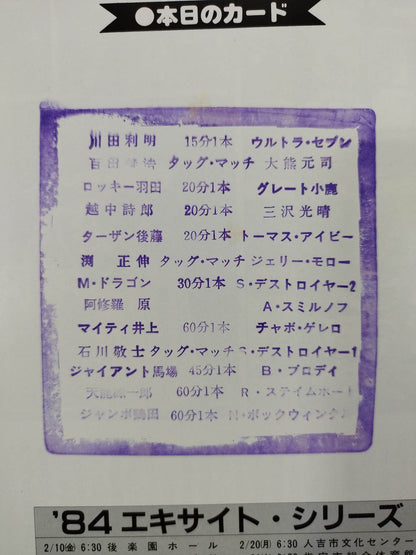 ●本日のカード
川田利明 15分1本 ウルトラ・セブン
百田 タッグ・マッチ 大熊元司
ロッキー羽田 20分1本 グレート小鹿
越中詩郎 20分1本 三沢光晴
ターザン後藤 20分1本 トーマス・アイビー
渕 正伸 タッグ・マッチ ジェリー・モロー
M・ドラゴン 30分1本 S・デストロイヤー2
阿修羅 原 A・スミルノフ
マイティ井上 60分1本 チャボ・ゲレロ
石川敬士 タッグ・マッチ S・デストロイヤー1
ジャイアント馬場 45分1本 B・ブロディ
天龍源一郎 60分1本 R・スティムボート
ジャンボ鶴田 60分1本 N・ボックウィンクル
'84エキサイト・シリーズ
2/10(金) 6:30 後楽園ホール 2/20(月) 6:30 人吉市文化センター